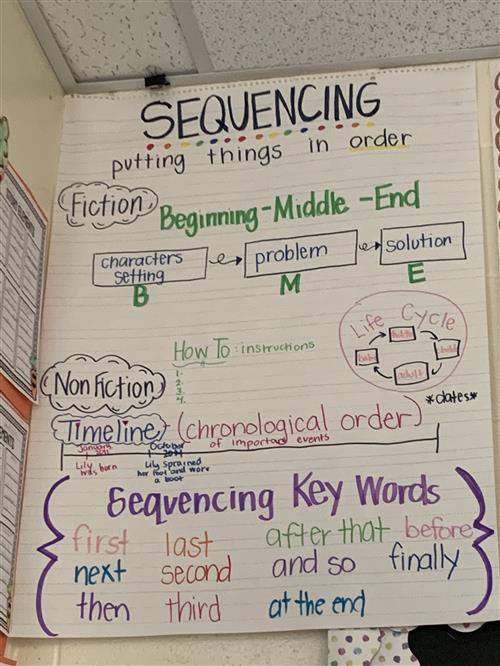 SEQUENCING
putting things in order
Fiction
Beginning-Middle-End
characters
setting
problem
solution
B
M
E
Life Cycle
child
adult
How To: instructions
1.
2.
3.
4.
Non Fiction
*dates*
Timeline (chronological order)
of important events
January
Lily
was born
October
Lily Sprained
her foot and wore
a boot
Sequencing Key Words
first last after that before
next second and so finally
then third at the end